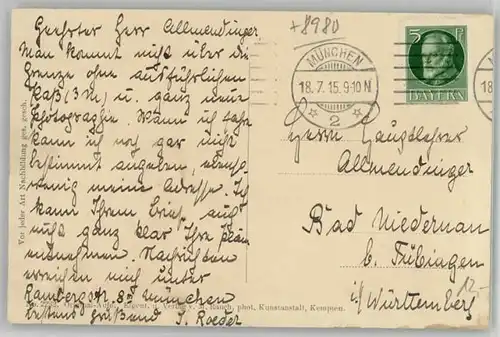 Geehrter Herr Allmendinger
Man kommt nicht über die
Grenze ohne ausführlichen
Paß (3 M) u. ganz neue
Photographie. Wann ich fahre
kann ich noch gar nicht
bestimmt angeben, ebenso-
wenig meine Adresse. Ich
kann Ihrem Brief auch
nicht ganz klar Ihre Pläne
entnehmen. Nachrichten
erreichen mich unter
Rambergstr. 8 München
bestens grüßend J. Roeder
+8980
MÜNCHEN
18.7.15.9-10N
2
5 Pf
BAYERN
18
Herrn Hauptlehrer
Allmendinger
Bad Niedernau
b. Tübingen
i/Württemberg
12-
Vor jeder Art Nachbildung ges. gesch.
Original-Aufn., Eigent. u. Verlag v. Rauch, phot. Kunstanstalt, Kempten.